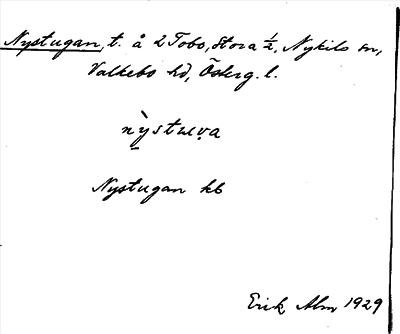 Nystugan, t. å 2 Tobo, Stora ½, Nykils sn,
Valkebo hd, Österg. l.
nỳstuva
Nystugan kb
Erik Alm 1929